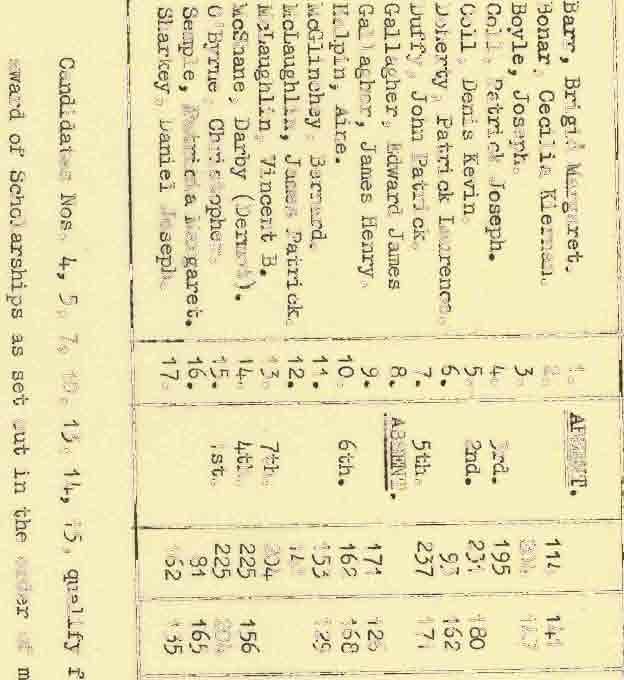 Barr, Brigid Margaret. 1. ABSENT.
Bonar, Cecilia Kiernan. 2. 114 141
Boyle, Joseph. 3.
Coll, Patrick Joseph. 4. 3rd. 195
Coil, Denis Kevin. 5. 2nd. 231 180
Doherty, Patrick Laurence. 6. 93 162
Duffy, John Patrick. 7. 5th. 237 171
Gallagher, Edward James 8. ABSENT.
Gallagher, James Henry. 9. 171 126
Halpin, Aire. 10. 6th. 169 168
McGlinchey, Bernard. 11. 153 129
McLaughlin, James Patrick. 12.
McLaughlin, Vincent B. 13. 7th. 204
McShane, Darby (Dermot). 14. 4th. 225 156
O'Byrne, Christopher. 15. 1st. 225 204
Semple, Patricia Margaret. 16. 81 165
Sharkey, Daniel Joseph. 17. 162 135
Candidates Nos. 4, 5, 7, 10, 13, 14, 15, qualify f
award of Scholarships as set out in the order of m